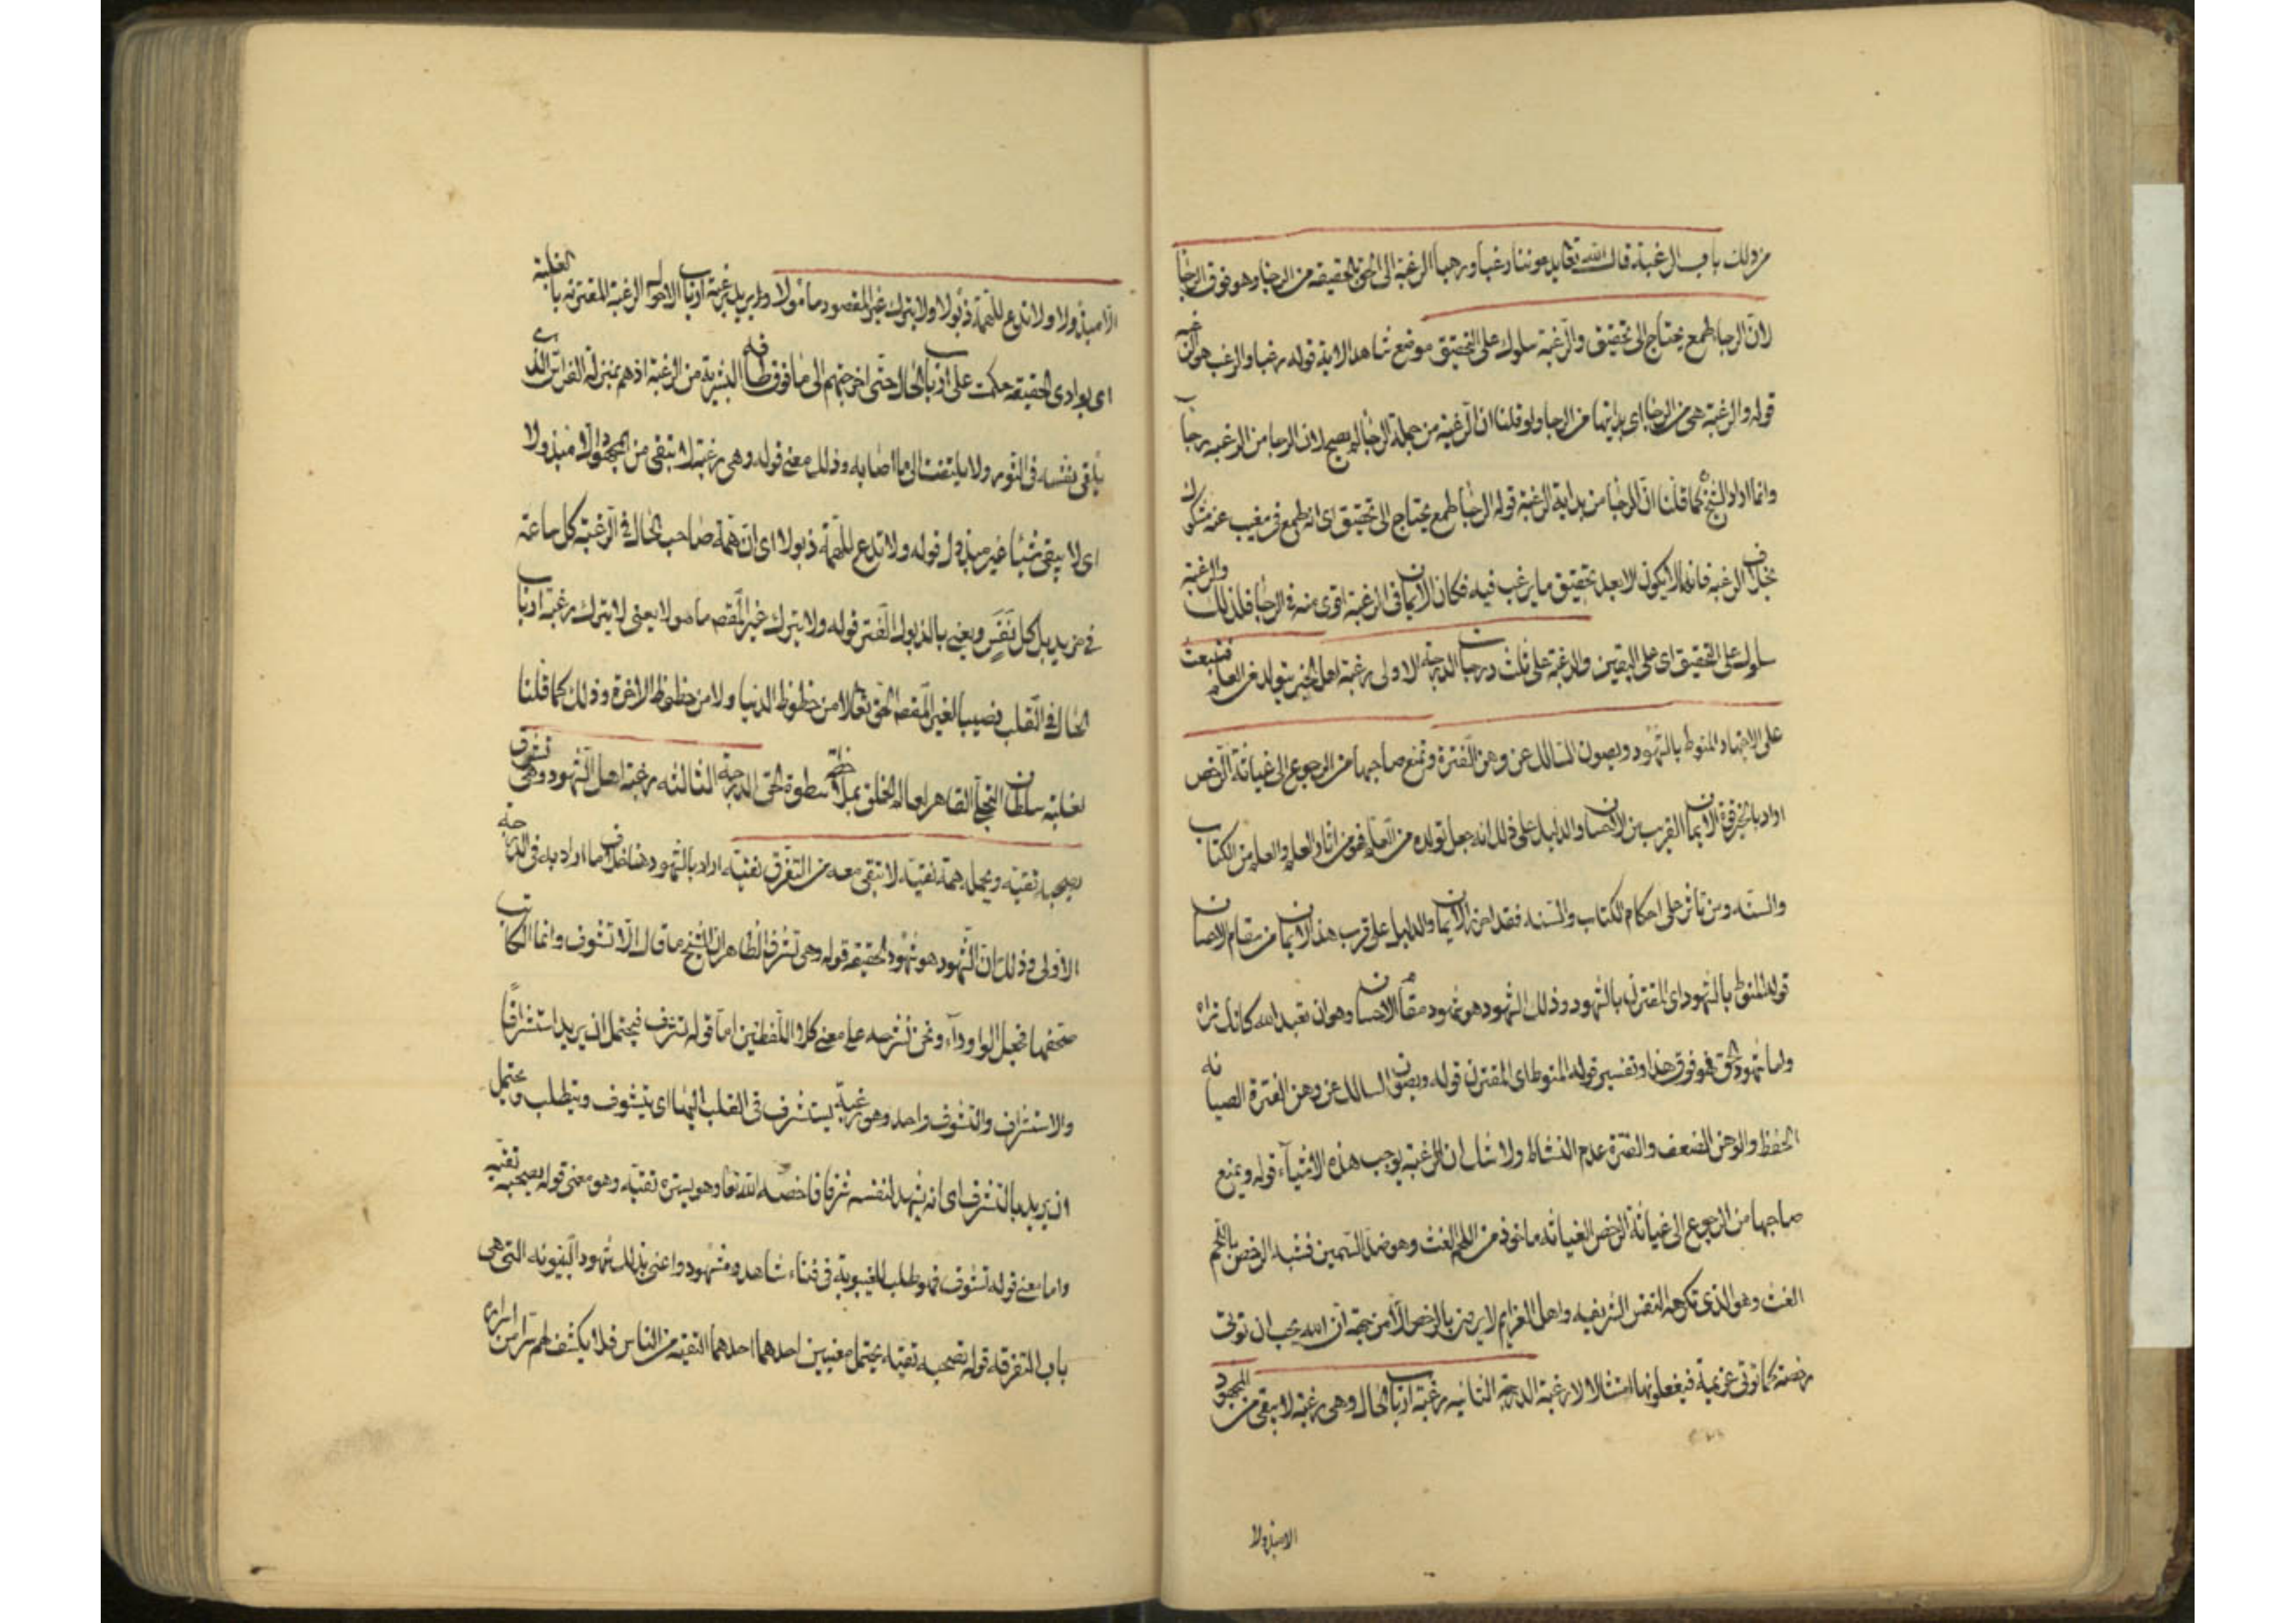 من ذلك باب الرغبة قال الله تعالى يدعوننا رغبا ورهبا الرغبة الى الحق بالحقيقة من الرجا وهو فوق الرجا
لان الرجا طمع يحتاج الى تحقيق والرغبة سلوك على التحقيق موضع شاهد الاية قوله رغبا والرغب هو الرغبة
قوله والرغبة هي من الرجا اى بدايتها من الرجا ولو قلنا ان الرغبة من جملة الرجا لم يصح لان الرجا من الرغبة رجا
وانما اراد الشيخ كما قلنا ان الرجا من بداية الرغبة قوله الرجا طمع يحتاج الى تحقيق اى انه طمع في مغيب عنه مشكوك
بخلاف الرغبة فانها لا يكون الا بعد تحقيق ما يرغب فيه فكان الايمان في الرغبة اقوى منه في الرجا فلذلك والرغبة
سلوك على التحقيق اى على اليقين والرغبة على ثلث درجات الدرجة الاولى رغبة اهل الخبر يتولد من العلم فتبعث
على الاجتهاد المنوط بالشهود ويصون السالك عن وهن الفترة وتمنع صاحبها من الرجوع الى غثاثة الرخص
اراد بالخبر قوة الايمان القريب من الاحسان والدليل على ذلك انه جعل تولده من العلم فهو من اثار العلم والعلم من الكتاب
والسنة ومن تاثر على احكام الكتاب والسنة فقد احرز الايمان والدليل على قرب هذا الايمان من مقام الاحسان
قوله المنوط بالشهود اى المقترن بالشهود وذلك الشهود هو شهود مقام الاحسان وهو ان تعبد الله كانك تراه
واما شهود الحق فهو فوق هذا وتفسير قوله المنوط اى المقترن قوله ويصون السالك عن وهن الفترة الصيانة
الحفظ والوهن الضعف والفترة عدم النشاط ولا شك ان الرغبة يوجب هذه الاشياء قوله ويمنع
صاحبها من الرجوع الى غثاثة الرخص الغثاثة ماخوذ من اللحم الغث وهو ضد السمين فشبه الرخص باللحم
الغث وهو الذى تكرهه النفس الشريفة واهل العزايم لا يرضون بالرخص الا من جهة ان الله يحب ان توتى
رخصه كما توتى عزيمة فيفعلونها امتثالا لا رغبة الدرجة الثانيه رغبة ارباب الحال وهى رغبة لا يبقى من المجهود
الا مبذولا
الا مبذولا ولا تدع للهمة ذبولا ولا يترك غير المقصود مامولا يريد برغبة ارباب الاحوال الرغبة المقترنه بالغلبة
اى بوادى الحقيقة حكمت على ارباب الحال حتى اخرجتهم الى ما فوق طاقة البشرية من الرغبة اذ هم بمنزلة الفراش الذى
يلقى نفسه في النور ولا يلتفت الى ما اصابه وذلك معنى قوله وهى رغبة لا يبقى من المجهود الا مبذولا
اى لا يبقى شيئا غير مبذول قوله ولا تدع للهمة ذبولا اى ان همة صاحب الحال في الرغبة كل ساعة
في مزيد بل كل نفس ويعنى بالذبول الفتر قوله ولا يترك غير المقصود مامولا يعنى لا يترك رغبة ارباب
الحال في القلب نصيبا لغير المقصود الحق تعالى لا من حظوظ الدنيا ولا من حظوظ الاخرة وذلك كما قلنا
لغلبة سلطان التجلى القاهر لعالم الخلق بملاحظة سطوة الحق الدرجة الثالثه رغبة اهل الشهود وهى تشرف
يصحبه تقية ويحمله همة نقية لا تبقى معه من التفرق بقية اراد بالشهود هنا خلاف ما اراد به في الدرجة
الاولى وذلك ان الشهود هو شهود الحقيقة قوله وهى تشرف الظاهر ان الشيخ ما قال الا تشوف وانما الكاتب
صحفها فجعل الواو راء ونحن نشرحه على معنى كلا اللفظين اما قوله تشرف فيحتمل ان يريد استشرافا
والاستشراف والتشوف واحد وهو رغبة يستشرف في القلب اليها اى يتشوف ويتطلب ويحتمل
ان يريد بالتشرف اى انه يشهد لنفسه شرفا قد خصه الله تعا وهو يستره تقية وهو معنى قوله يصحبه تقية
واما معنى قوله تشوف فهو طلب للغيبوبة في فناء شاهد ومشهود واعنى بذلك شهود البينونه التى هى
باب التفرقة قوله تصحبه تقية يحتمل معنيين احدهما احدهما التقية من الناس فلا يكشف لهم سرا من اسراره